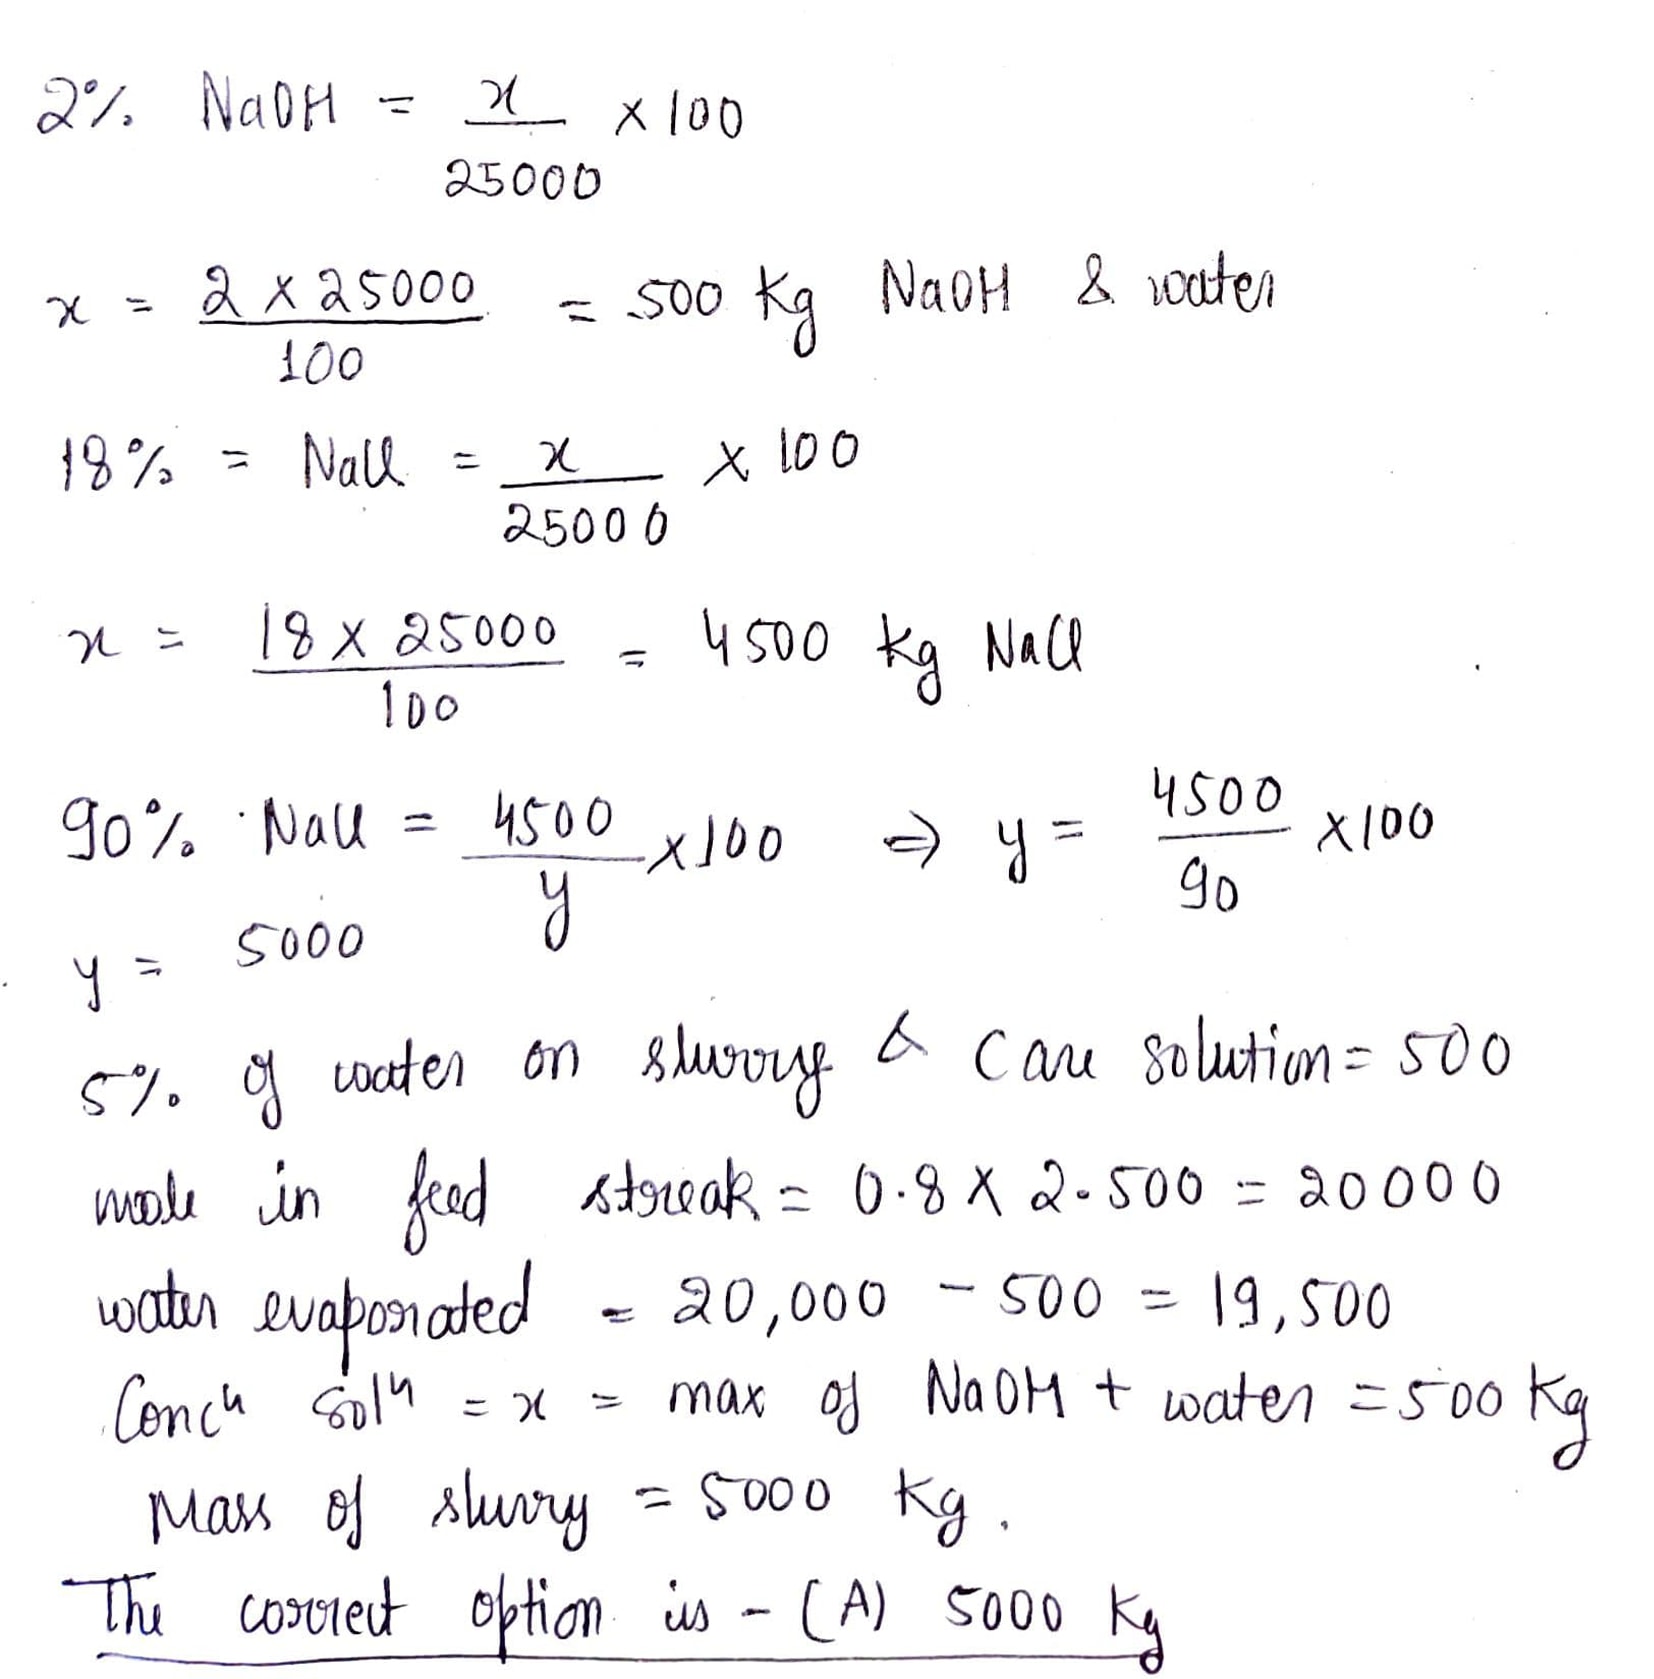 2% NaOH = x/25000 × 100
x = 2 × 25000/100 = 500 Kg NaOH & water
18% = NaCl = x/25000 × 100
x = 18 × 25000/100 = 4500 Kg NaCl
90% NaCl = 4500/y × 100 ⇒ y = 4500/90 × 100
y = 5000
5% of water on slurry & Care solution = 500
mole in feed streak = 0.8 × 2.500 = 20000
water evaporated = 20,000 - 500 = 19,500
Concn soln = x = max of NaOH + water = 500 Kg
Mass of slurry = 5000 Kg.
The correct option is - (A) 5000 Kg